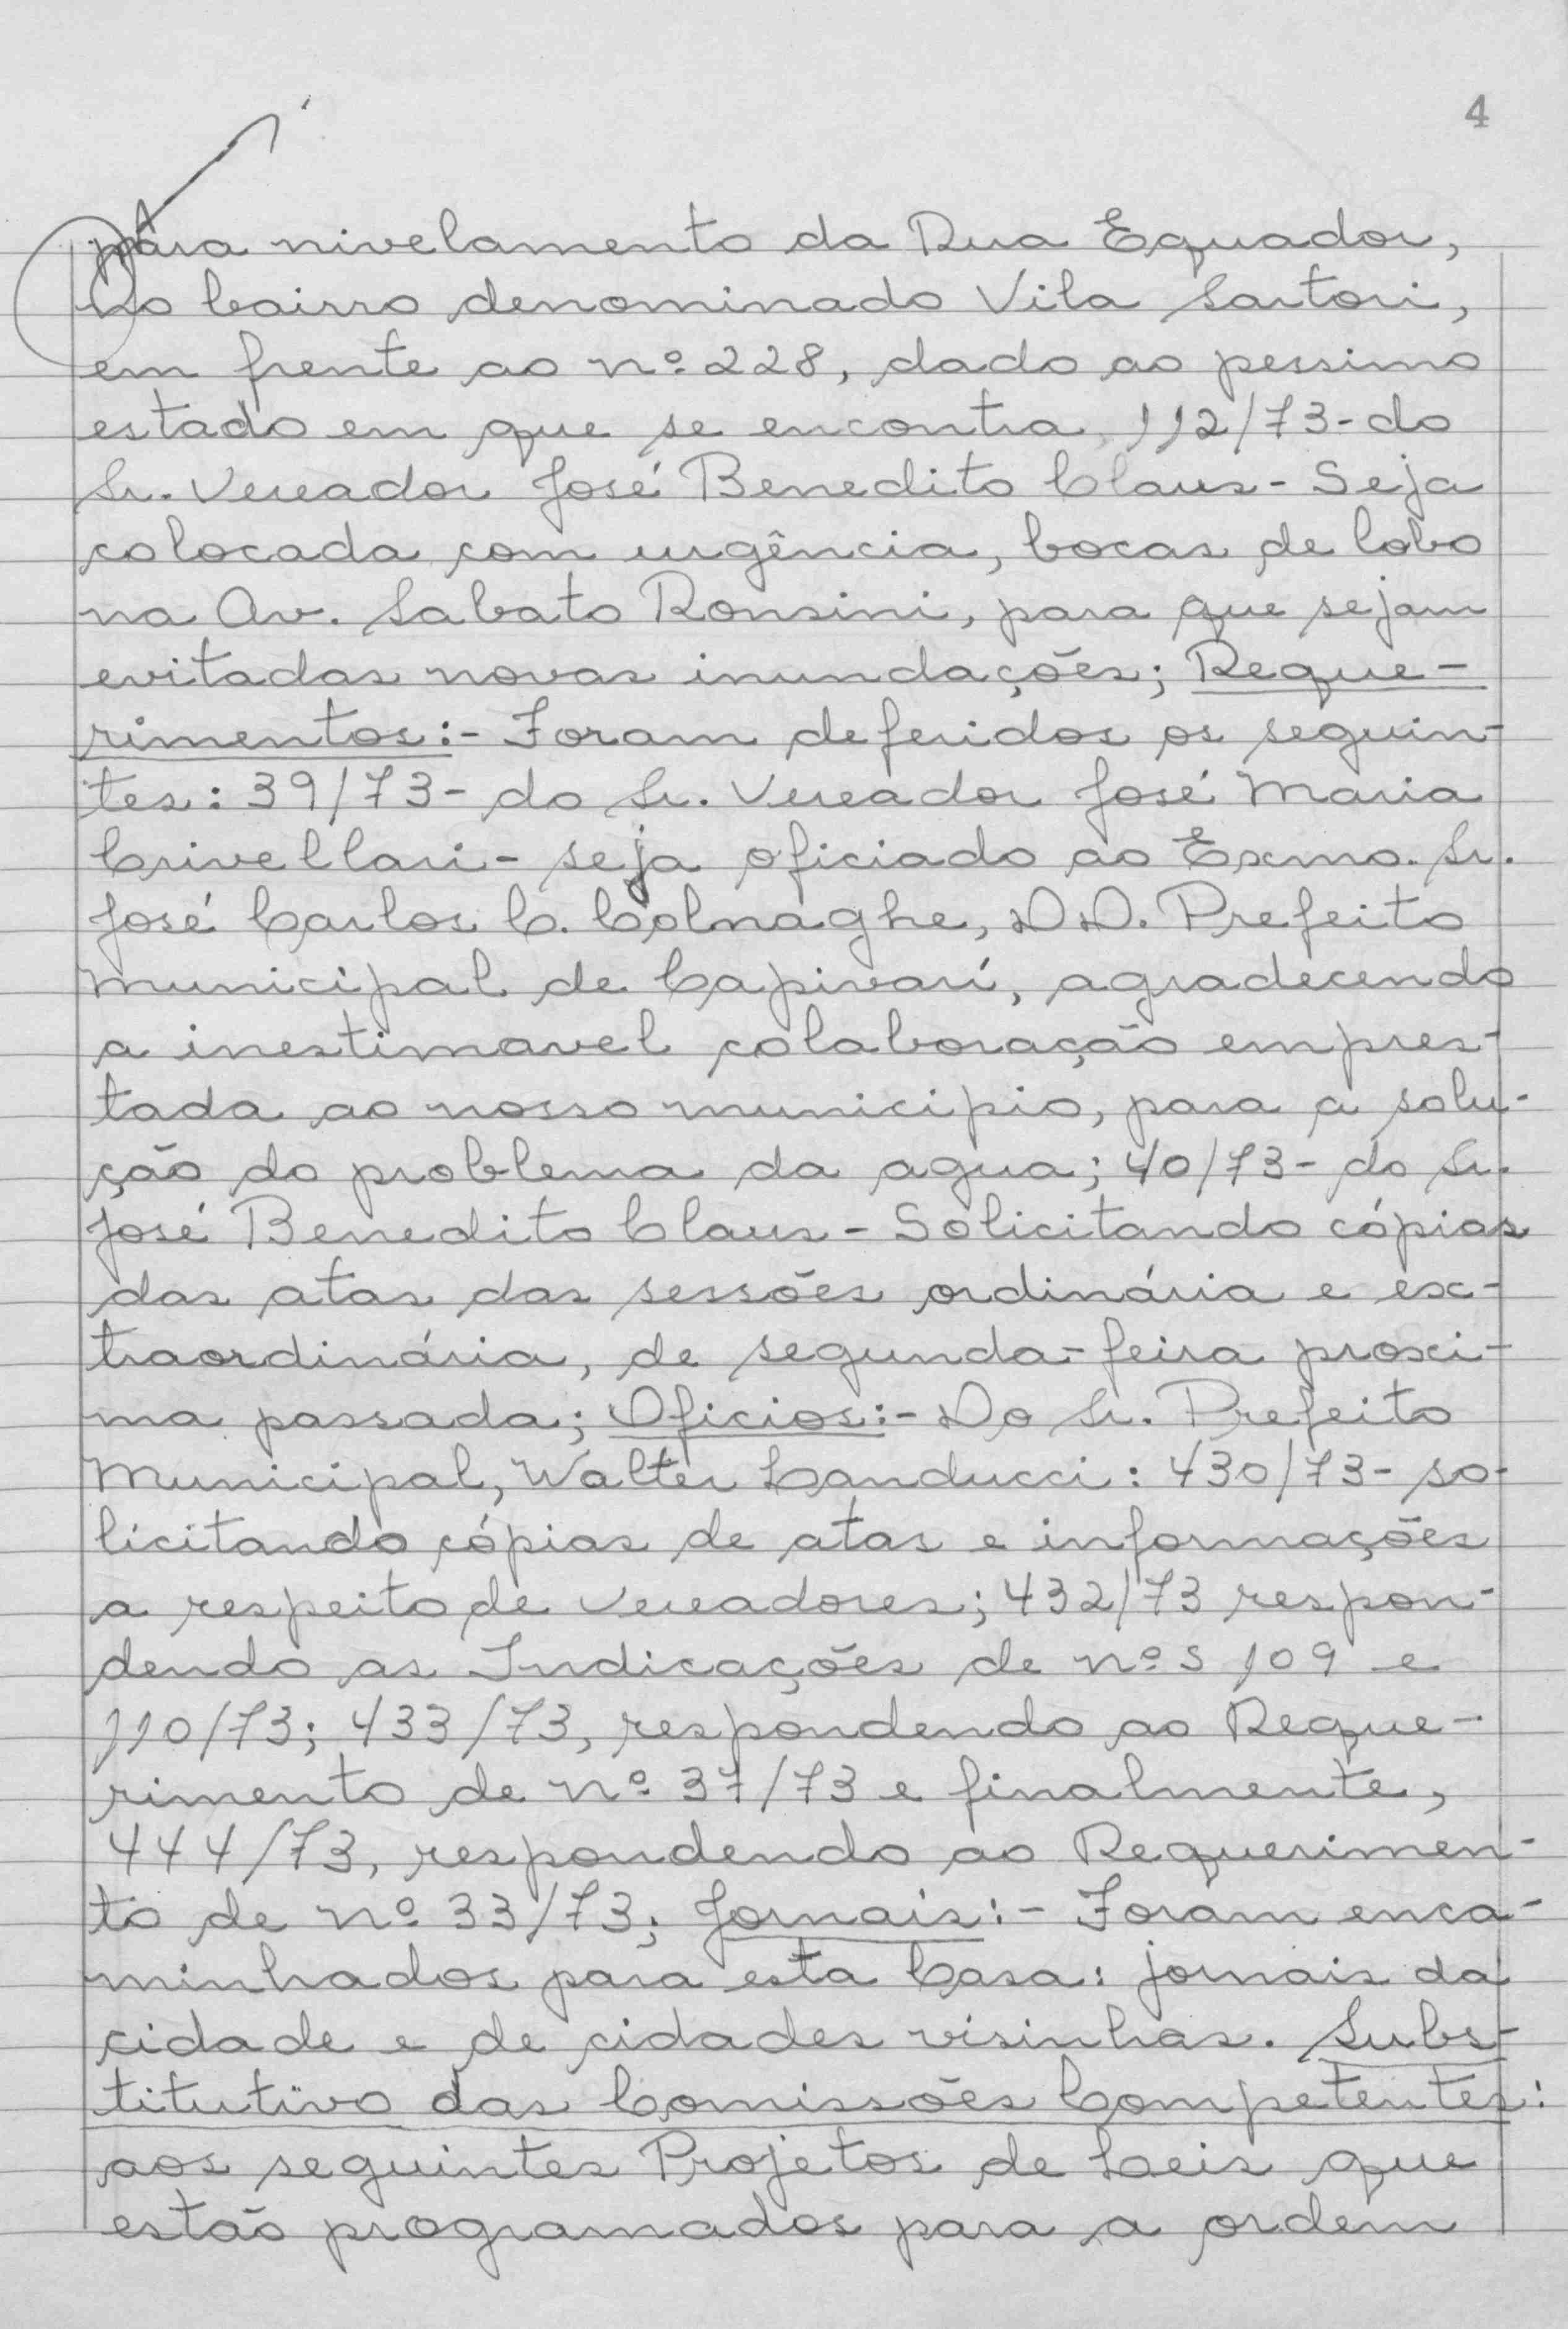 4
para nivelamento da Rua Equador,
no bairro denominado Vila Sartori,
em frente ao nº 228, dado ao pessimo
estado em que se encontra, 112/73- do
Sr. Vereador José Benedito Claus - Seja
colocada com urgência, bocas de lobo
na Av. Sabato Ronsini, para que sejam
evitadas novas inundações; Reque-
rimentos:- Foram deferidos os seguin-
tes: 39/73- do Sr. Vereador José Maria
Crivellari - seja oficiado ao Exmo. Sr.
José Carlos C. Colnaghe, DD. Prefeito
Municipal de Capivarí, agradecendo
a inestimavel colaboração empres-
tada ao nosso municipio, para a solu-
ção do problema da agua; 40/73- do Sr.
José Benedito Claus - Solicitando cópias
das atas das sessões ordinária e ex-
traordinária, de segunda-feira proxi-
ma passada; Oficios:- Do Sr. Prefeito
Municipal, Walter Canducci: 430/73- so-
licitando cópias de atas e informações
a respeito de vereadores; 432/73 respon-
dendo as Indicações de nºs 109 e
110/73; 433/73, respondendo ao Reque-
rimento de nº 37/73 e finalmente,
444/73, respondendo ao Requerimen-
to de nº 33/73; Jornais:- Foram enca-
minhados para esta Casa: jornais da
cidade e de cidades visinhas. Subs-
titutivo das Comissões Competentes:
aos seguintes Projetos de Leis que
estão programados para a ordem